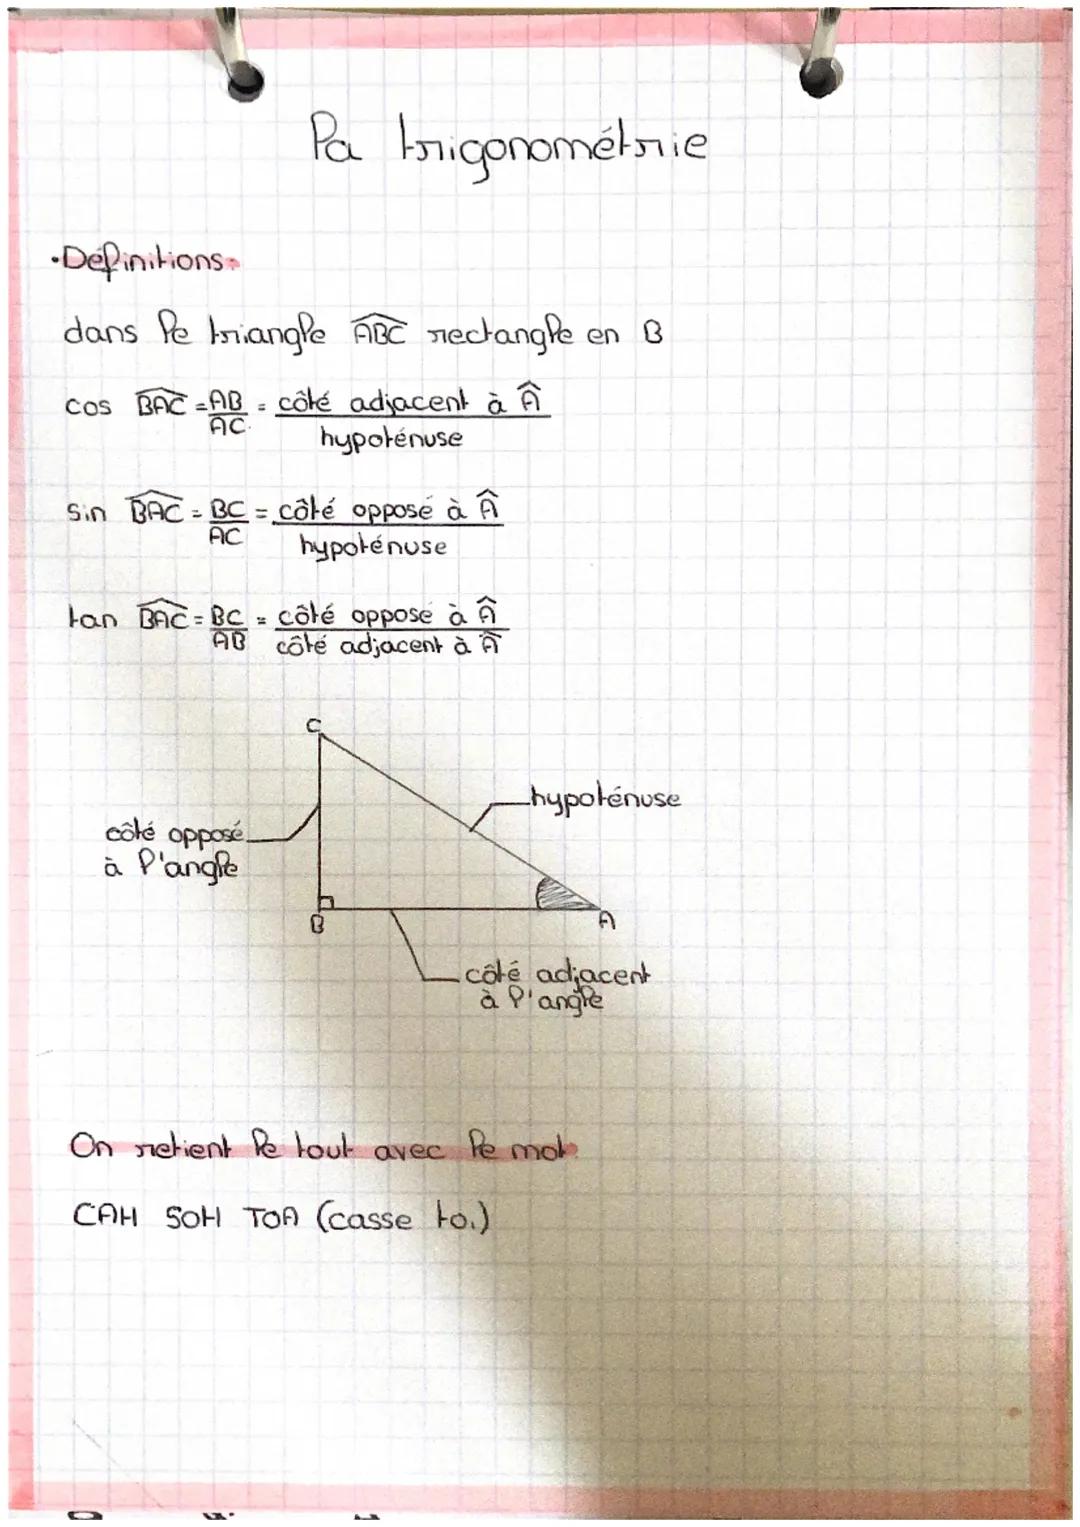 la trigonométrie
•Définitions:
dans le triangle \widehat{ABC} rectangle en B
cos \widehat{BAC} = \frac{AB}{AC} = \frac{côté adjacent à \hat{A}}{hypoténuse}
sin \widehat{BAC} = \frac{BC}{AC} = \frac{côté opposé à \hat{A}}{hypoténuse}
tan \widehat{BAC} = \frac{BC}{AB} = \frac{côté opposé à \hat{A}}{côté adjacent à \hat{A}}
C
hypoténuse
côté opposé
à l'angle
B
A
côté adjacent
à l'angle
On retient le tout avec le mot:
CAH SOH TOA (casse toi)